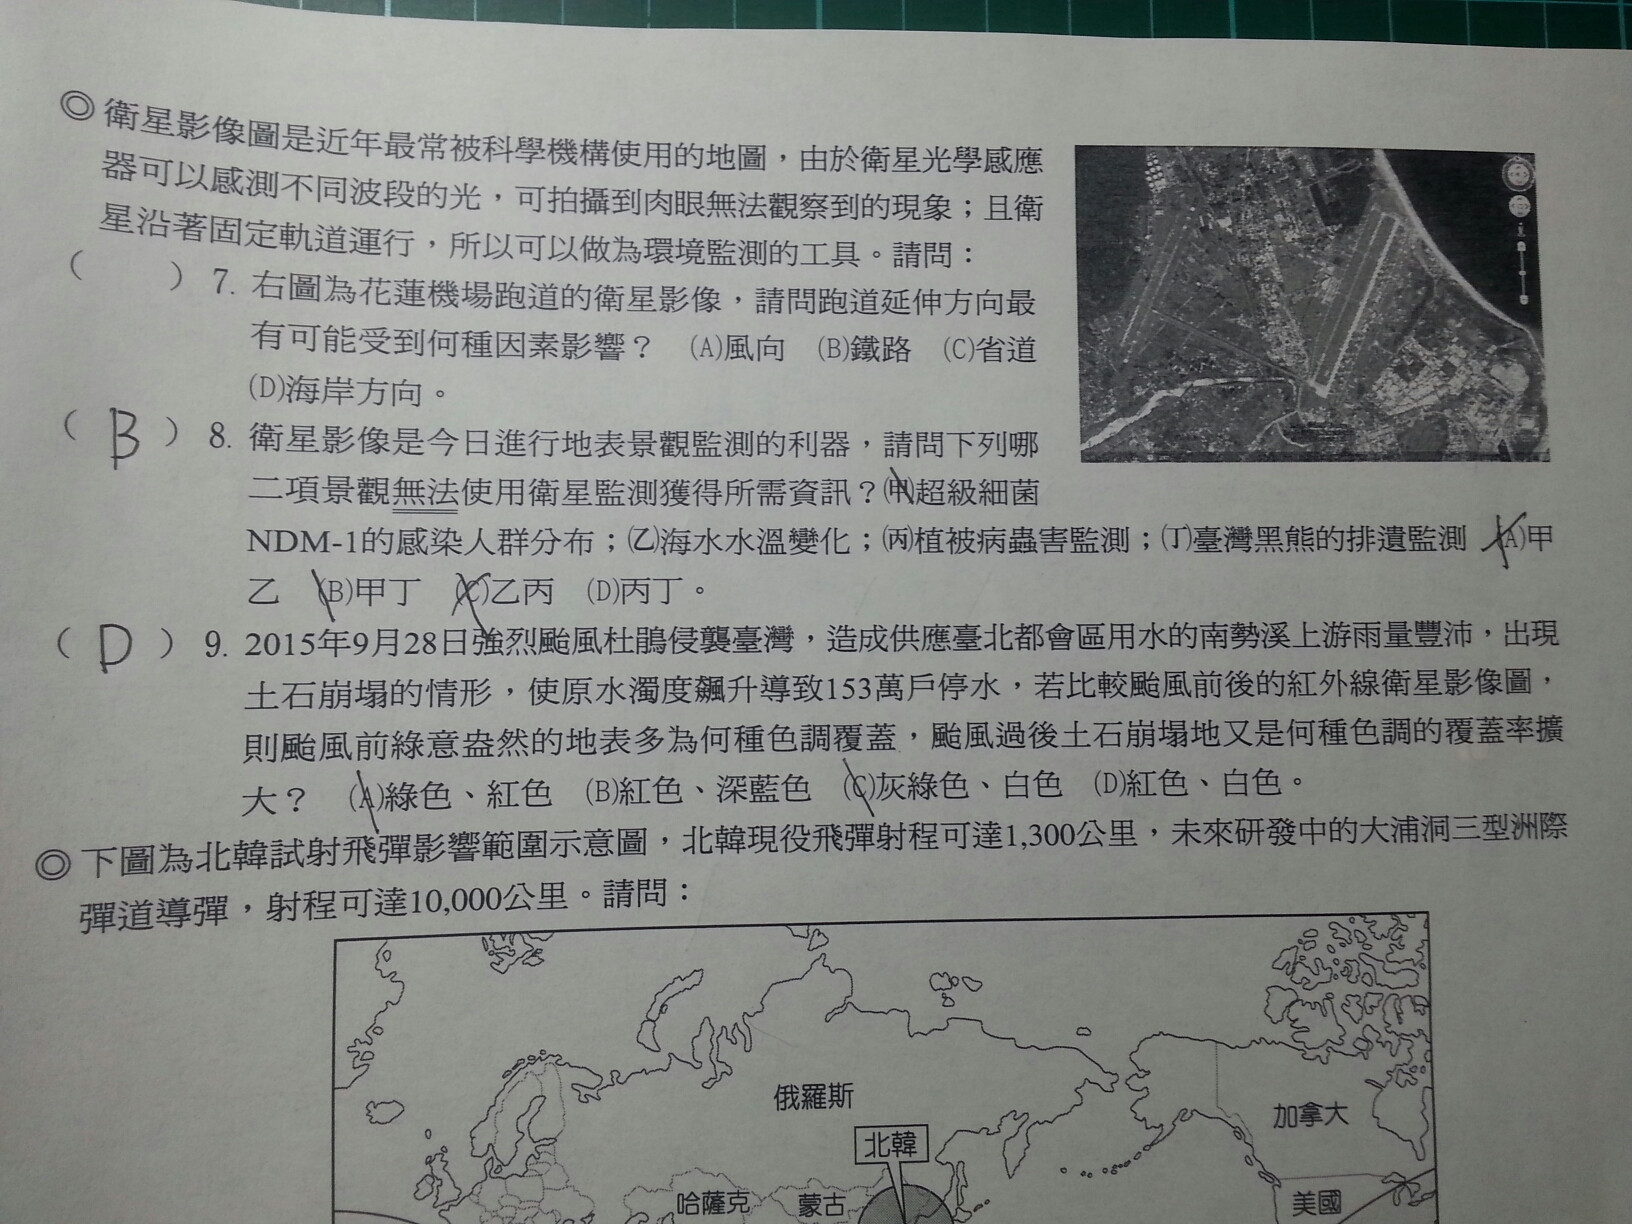 ◎衛星影像圖是近年最常被科學機構使用的地圖，由於衛星光學感應
器可以感測不同波段的光，可拍攝到肉眼無法觀察到的現象；且衛
星沿著固定軌道運行，所以可以做為環境監測的工具。請問：
（　　）7. 右圖為花蓮機場跑道的衛星影像，請問跑道延伸方向最
有可能受到何種因素影響？　(A)風向　(B)鐵路　(C)省道
(D)海岸方向。
（ B ）8. 衛星影像是今日進行地表景觀監測的利器，請問下列哪
二項景觀無法使用衛星監測獲得所需資訊？(甲)超級細菌
NDM-1的感染人群分布；(乙)海水水溫變化；(丙)植被病蟲害監測；(丁)臺灣黑熊的排遺監測　(A)甲
乙　(B)甲丁　(C)乙丙　(D)丙丁。
（ D ）9. 2015年9月28日強烈颱風杜鵑侵襲臺灣，造成供應臺北都會區用水的南勢溪上游雨量豐沛，出現
土石崩塌的情形，使原水濁度飆升導致153萬戶停水，若比較颱風前後的紅外線衛星影像圖，
則颱風前綠意盎然的地表多為何種色調覆蓋，颱風過後土石崩塌地又是何種色調的覆蓋率擴
大？　(A)綠色、紅色　(B)紅色、深藍色　(C)灰綠色、白色　(D)紅色、白色。
◎下圖為北韓試射飛彈影響範圍示意圖，北韓現役飛彈射程可達1,300公里，未來研發中的大浦洞三型洲際
彈道導彈，射程可達10,000公里。請問：
俄羅斯
加拿大
北韓
哈薩克
蒙古
美國